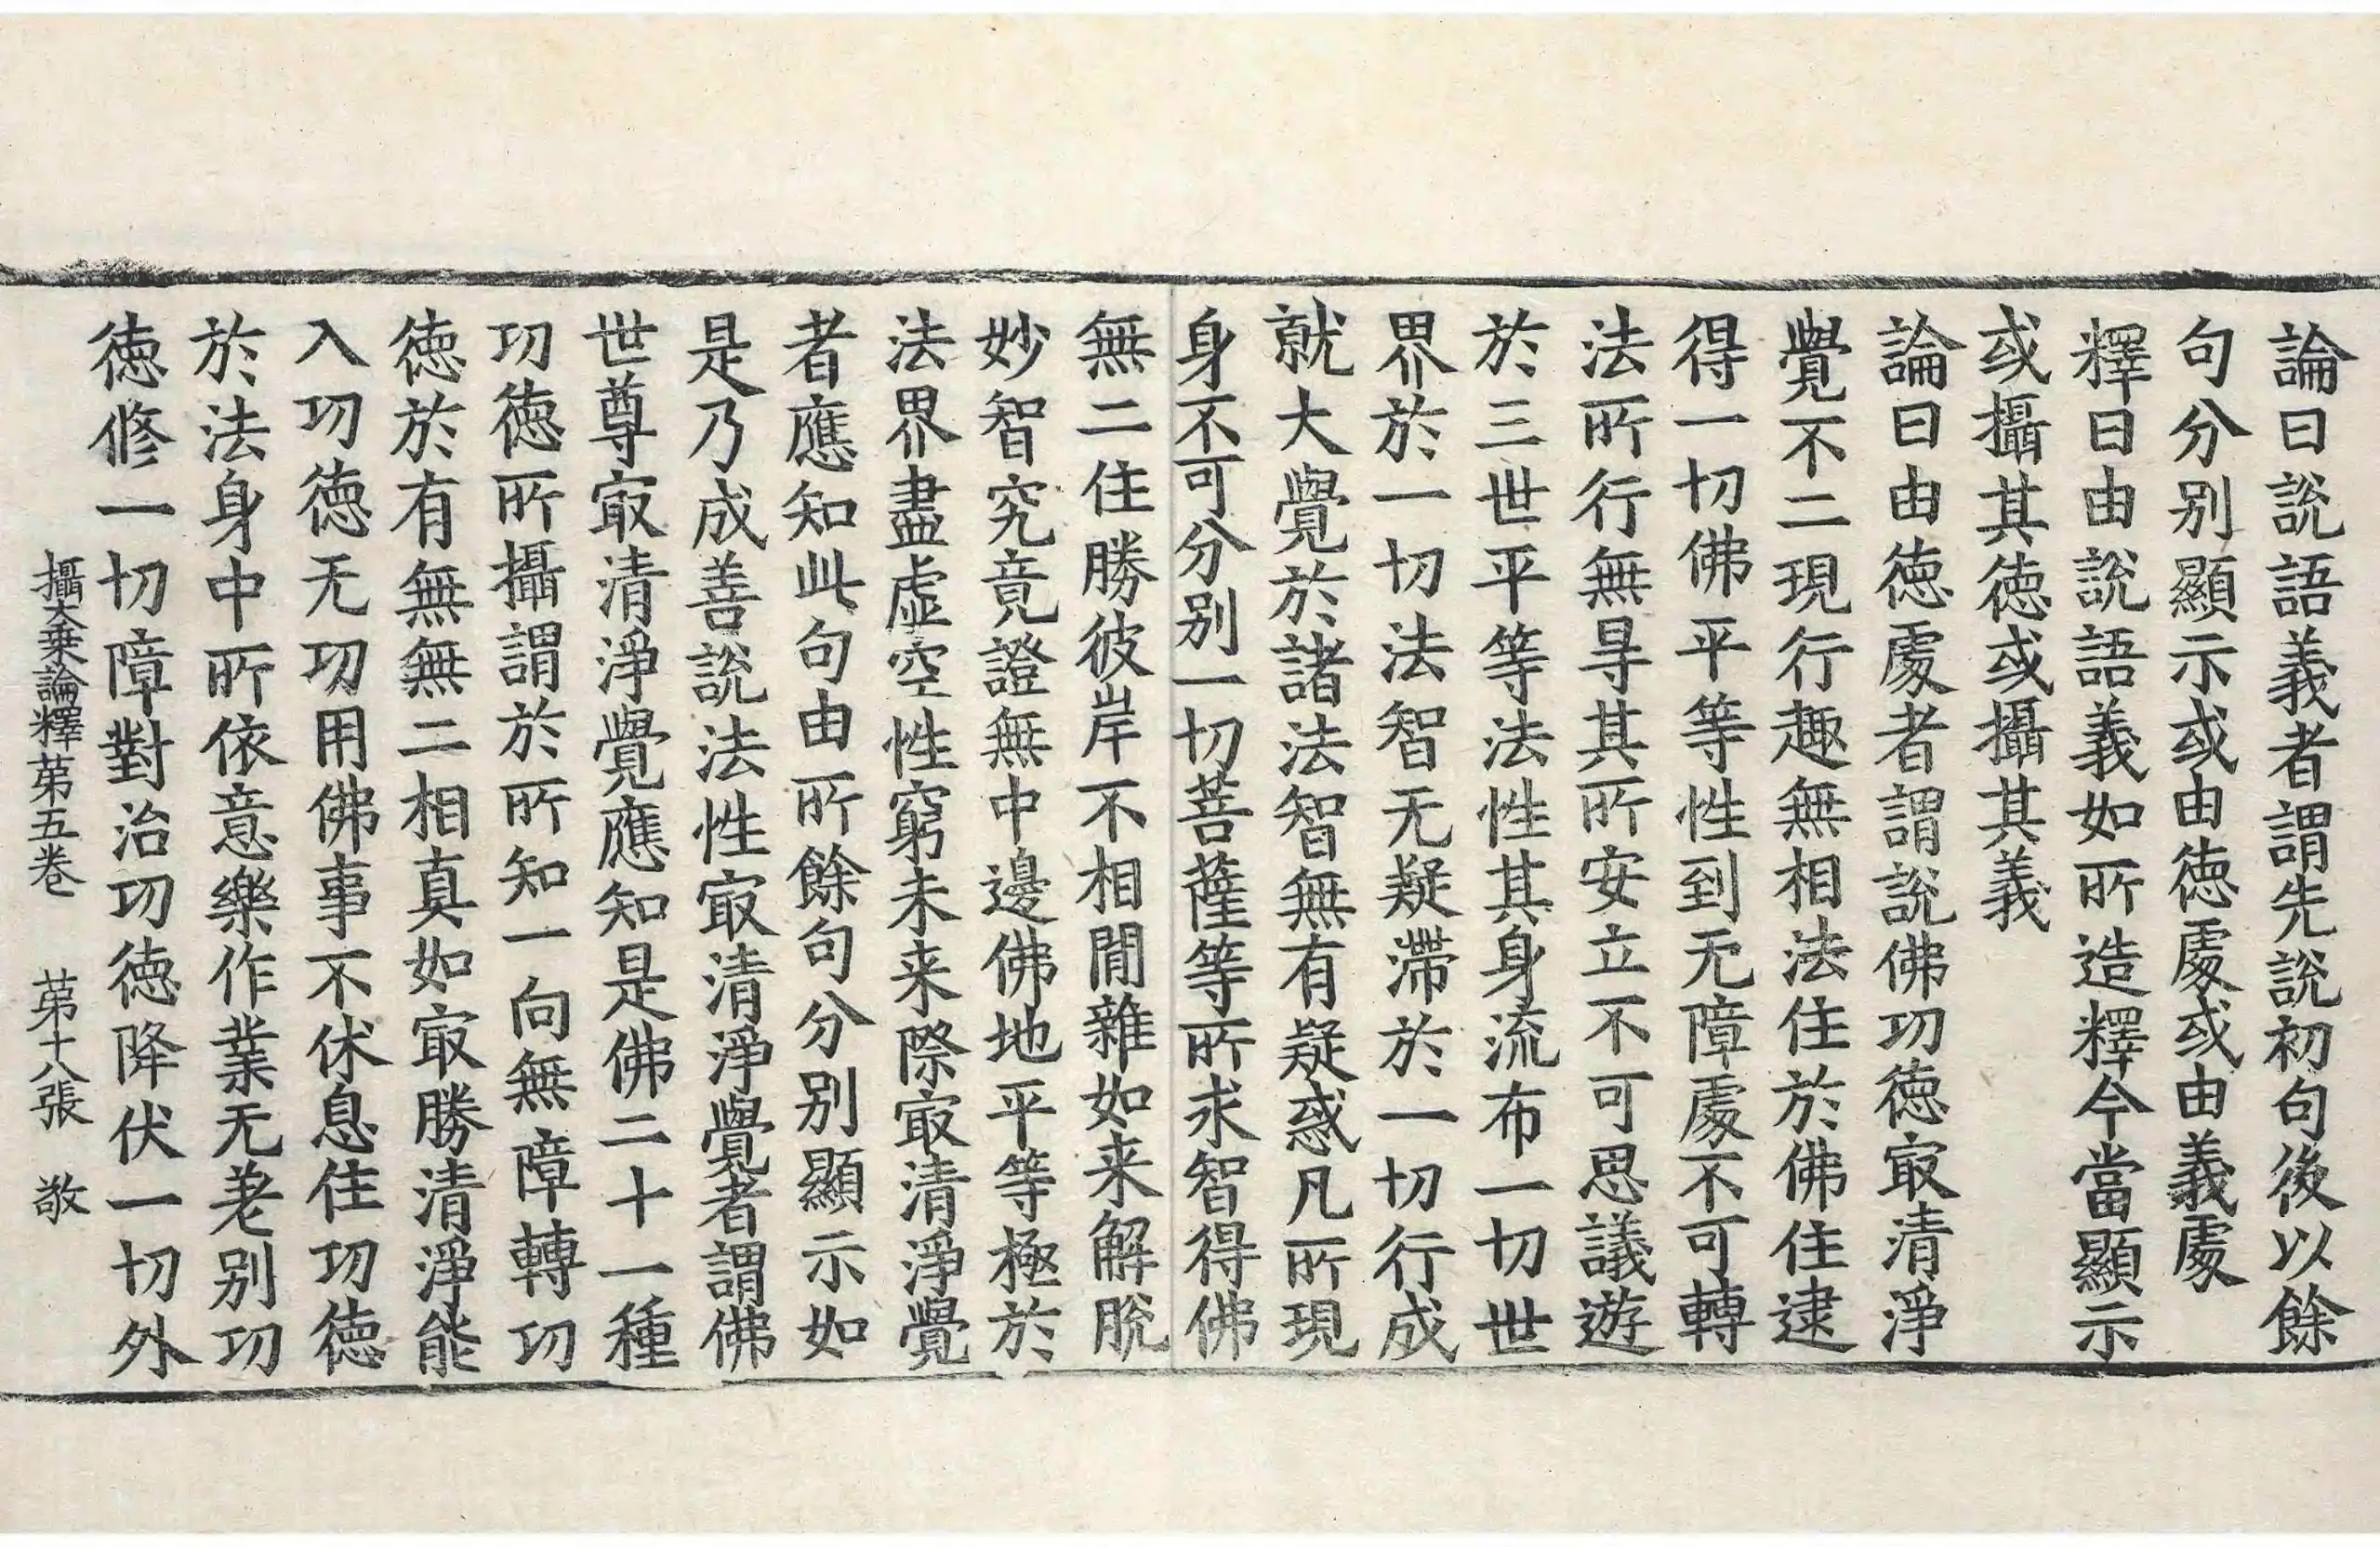 論曰說語義者謂先說初句後以餘
句分別顯示或由德處或由義處
釋曰由說語義如所造釋今當顯示
或攝其德或攝其義
論曰由德處者謂說佛功德㝡清淨
覺不二現行趣無相法住於佛住逮
得一切佛平等性到无障處不可轉
法所行無㝵其所安立不可思議遊
於三世平等法性其身流布一切世
界於一切法智无疑滯於一切行成
就大覺於諸法智無有疑惑凡所現
身不可分別一切菩薩等所求智得佛
無二住勝彼岸不相閒雜如来解脫
妙智究竟證無中邊佛地平等極於
法界盡虛空性窮未来際㝡清淨覺
者應知此句由所餘句分別顯示如
是乃成善說法性㝡清淨覺者謂佛
世尊㝡清淨覺應知是佛二十一種
功德所攝謂於所知一向無障轉功
德於有無無二相真如㝡勝清淨能
入功德无功用佛事不休息住功德
於法身中所依意樂作業无差別功
德修一切障對治功德降伏一切外
攝大乗論釋苐五卷 苐十八張 敬